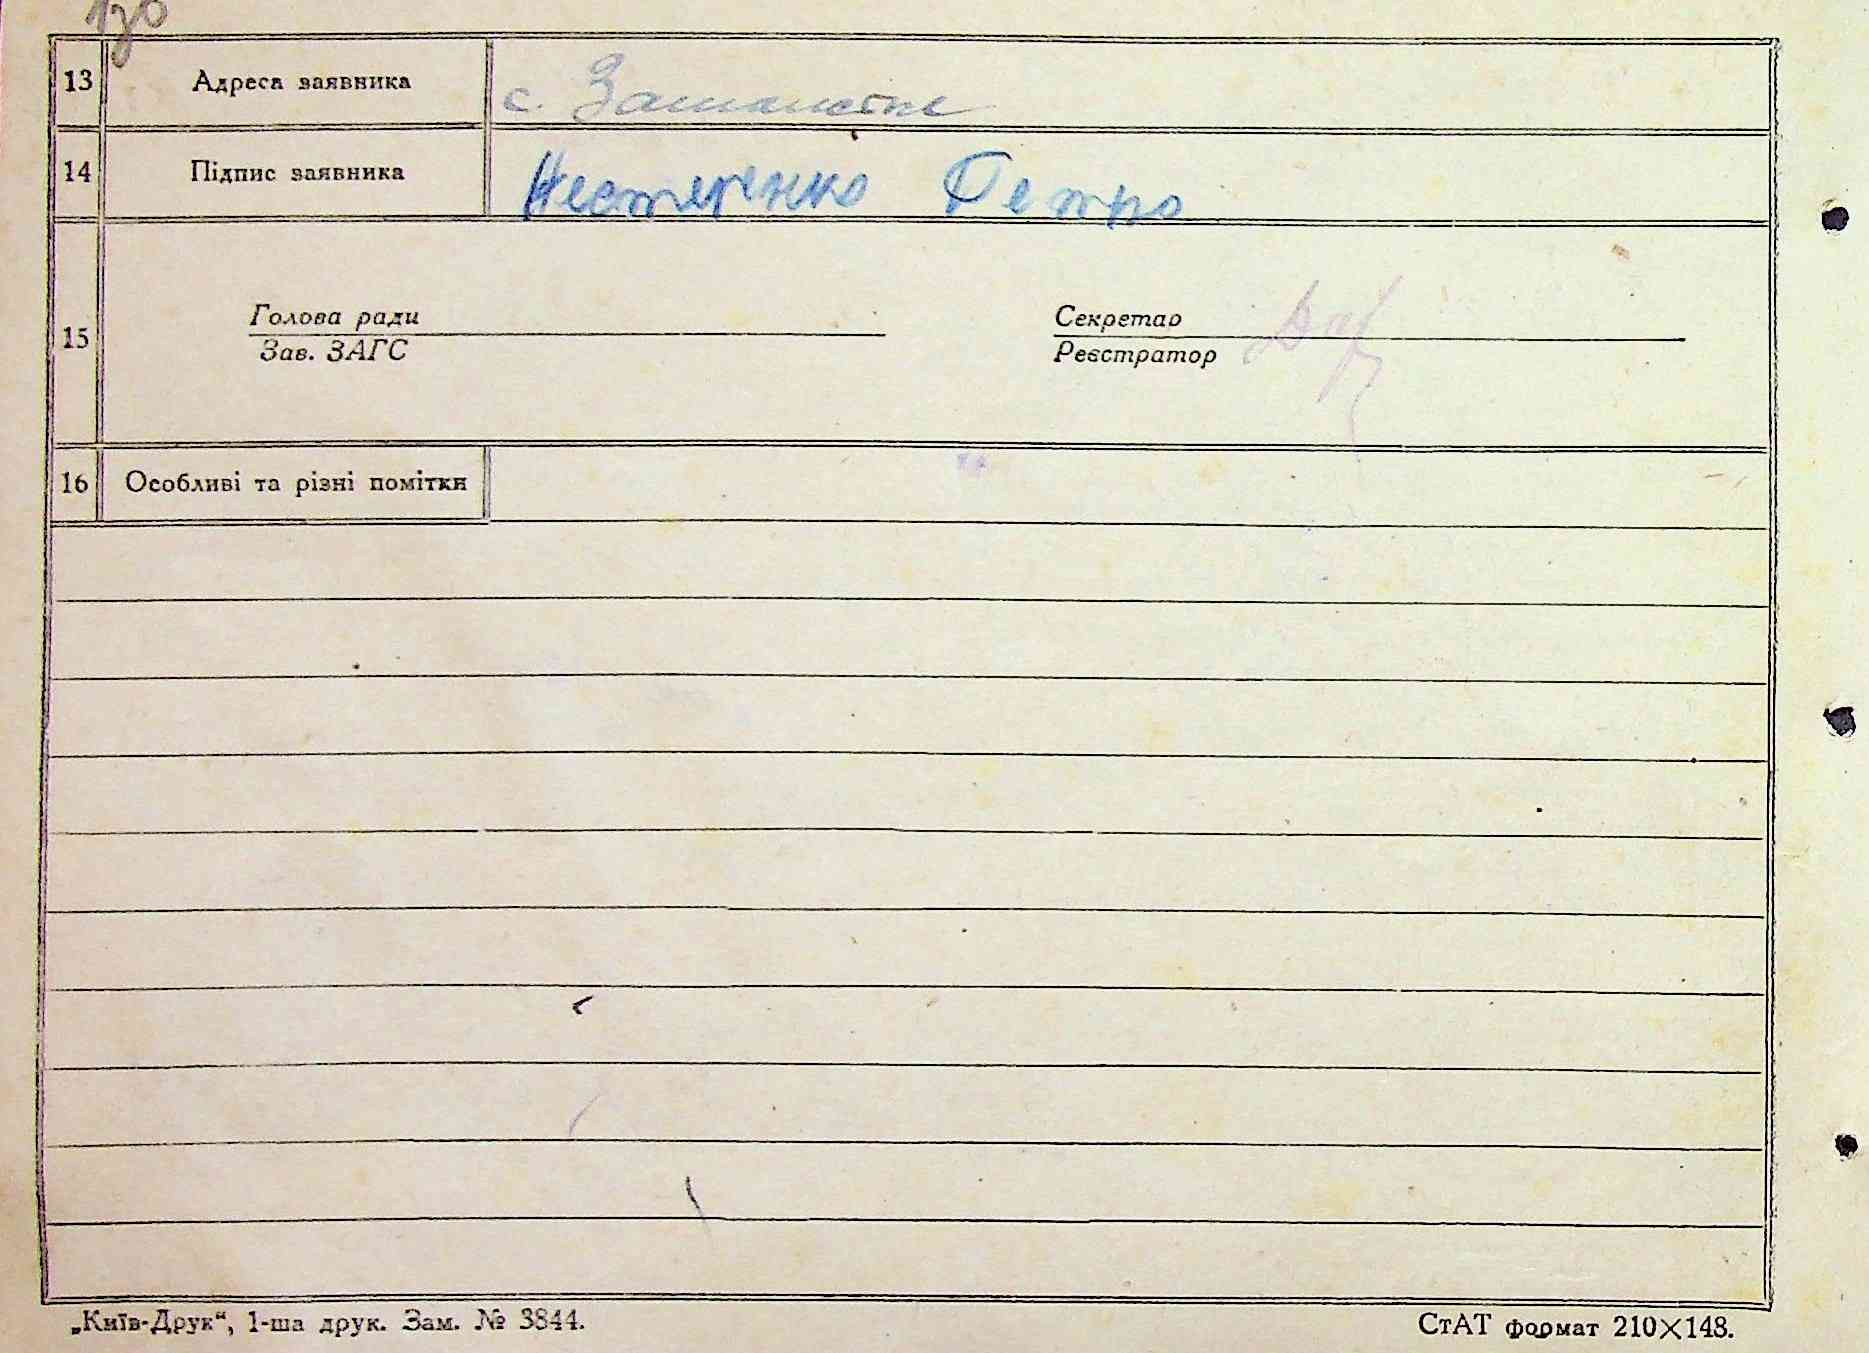 13 Адреса заявника с.
14 Підпис заявника Нестеренко Петро
15 Голова ради Секретар
Зав. ЗАГС Реєстратор
16 Особливі та різні помітки
„Київ-Друк“, 1-ша друк. Зам. № 3844. СтАТ формат 210×148.